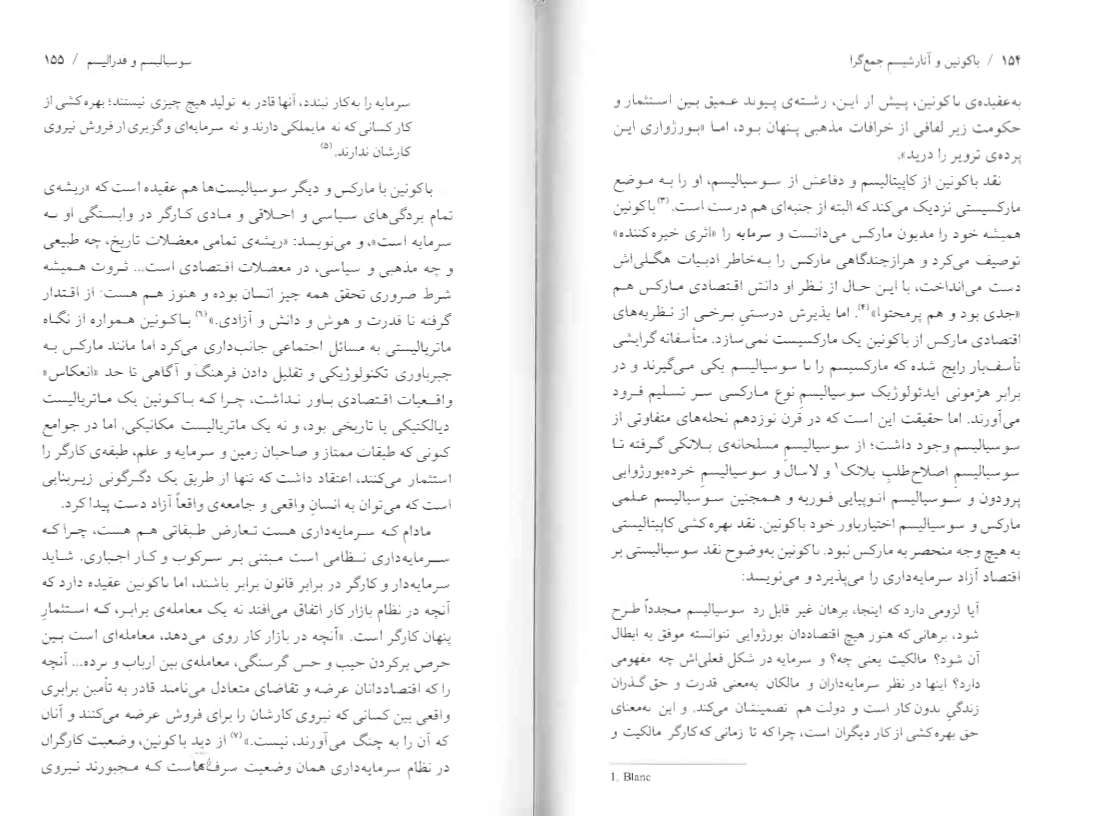 ۱۵۴ / باکونین و آنارشیسم جمع‌گرا
به‌عقیده‌ی باکونین، پیش از این، رشته‌ی پیوند عمیق بین استثمار و
حکومت زیر لفافی از خرافات مذهبی پنهان بود، اما «بورژوازی این
پرده‌ی تزویر را درید».
نقد باکونین از کاپیتالیسم و دفاعش از سوسیالیسم، او را به موضع
مارکسیستی نزدیک می‌کند که البته از جنبه‌ای هم درست است.(۳) باکونین
همیشه خود را مدیون مارکس می‌دانست و سرمایه را «اثری خیره‌کننده»
توصیف می‌کرد و هرازچندگاهی مارکس را به‌خاطر ادبیات هگلی‌اش
دست می‌انداخت، با این حال از نظر او دانش اقتصادی مارکس هم
«جدی بود و هم پرمحتوا»(۴). اما پذیرش درستیِ برخی از نظریه‌های
اقتصادی مارکس از باکونین یک مارکسیست نمی‌سازد. متأسفانه گرایشی
تأسف‌بار رایج شده که مارکسیسم را با سوسیالیسم یکی می‌گیرند و در
برابر هژمونی ایدئولوژیک سوسیالیسمِ نوع مارکسی سر تسلیم فرود
می‌آورند. اما حقیقت این است که در قرن نوزدهم نحله‌های متفاوتی از
سوسیالیسم وجود داشت؛ از سوسیالیسمِ مسلحانه‌ی بلانکی گرفته تا
سوسیالیسم اصلاح‌طلبِ بلانک۱ و لاسال و سوسیالیسمِ خرده‌بورژوایی
پرودون و سوسیالیسم اتوپیایی فوریه و همچنین سوسیالیسم علمی
مارکس و سوسیالیسم اختیارباور خود باکونین. نقد بهره‌کشی کاپیتالیستی
به هیچ وجه منحصر به مارکس نبود. باکونین به‌وضوح نقد سوسیالیستی بر
اقتصاد آزاد سرمایه‌داری را می‌پذیرد و می‌نویسد:
آیا لزومی دارد که اینجا، برهان غیر قابل رد سوسیالیسم مجدداً طرح
شود، برهانی که هنوز هیچ اقتصاددان بورژوایی نتوانسته موفق به ابطال
آن شود؟ مالکیت یعنی چه؟ و سرمایه در شکل فعلی‌اش چه مفهومی
دارد؟ اینها در نظر سرمایه‌داران و مالکان به‌معنی قدرت و حق گذران
زندگیِ بدون کار است و دولت هم تضمینشان می‌کند. و این به‌معنای
حق بهره‌کشی از کار دیگران است، چرا که تا زمانی که کارگر مالکیت و
1. Blanc
سوسیالیسم و فدرالیسم / ۱۵۵
سرمایه را به‌کار نبندد، آنها قادر به تولید هیچ چیزی نیستند؛ بهره‌کشی از
کار کسانی که نه مایملکی دارند و نه سرمایه‌ای و گزیری از فروش نیروی
کارشان ندارند.(۵)
باکونین با مارکس و دیگر سوسیالیست‌ها هم عقیده است که «ریشه‌ی
تمام بردگی‌های سیاسی و اخلاقی و مادی کارگر در وابستگی او به
سرمایه است»، و می‌نویسد: «ریشه‌ی تمامی معضلات تاریخ، چه طبیعی
و چه مذهبی و سیاسی، در معضلات اقتصادی است... ثروت همیشه
شرط ضروری تحقق همه چیز انسان بوده و هنوز هم هست: از اقتدار
گرفته تا قدرت و هوش و دانش و آزادی.»(۶) باکونین همواره از نگاه
ماتریالیستی به مسائل اجتماعی جانب‌داری می‌کرد اما مانند مارکس به
جبرباوری تکنولوژیکی و تقلیل دادن فرهنگ و آگاهی تا حد «انعکاس»
واقعیات اقتصادی باور نداشت، چرا که باکونین یک ماتریالیست
دیالکتیکی یا تاریخی بود، و نه یک ماتریالیست مکانیکی. اما در جوامع
کنونی که طبقات ممتاز و صاحبان زمین و سرمایه و علم، طبقه‌ی کارگر را
استثمار می‌کنند، اعتقاد داشت که تنها از طریق یک دگرگونی زیربنایی
است که می‌توان به انسانِ واقعی و جامعه‌ی واقعاً آزاد دست پیدا کرد.
مادام که سرمایه‌داری هست تعارض طبقاتی هم هست، چرا که
سرمایه‌داری نظامی است مبتنی بر سرکوب و کار اجباری. شاید
سرمایه‌دار و کارگر در برابر قانون برابر باشند، اما باکونین عقیده دارد که
آنچه در نظام بازار کار اتفاق می‌افتد نه یک معامله‌ی برابر، که استثمارِ
پنهان کارگر است. «آنچه در بازار کار روی می‌دهد، معامله‌ای است بین
حرص پرکردن جیب و حس گرسنگی، معامله‌ی بین ارباب و برده... آنچه
را که اقتصاددانان عرضه و تقاضای متعادل می‌نامند قادر به تأمین برابری
واقعی بین کسانی که نیروی کارشان را برای فروش عرضه می‌کنند و آنان
که آن را به چنگ می‌آورند، نیست.»(۷) از دید باکونین، وضعیت کارگران
در نظام سرمایه‌داری همان وضعیت سرف‌هاست که مجبورند نیروی